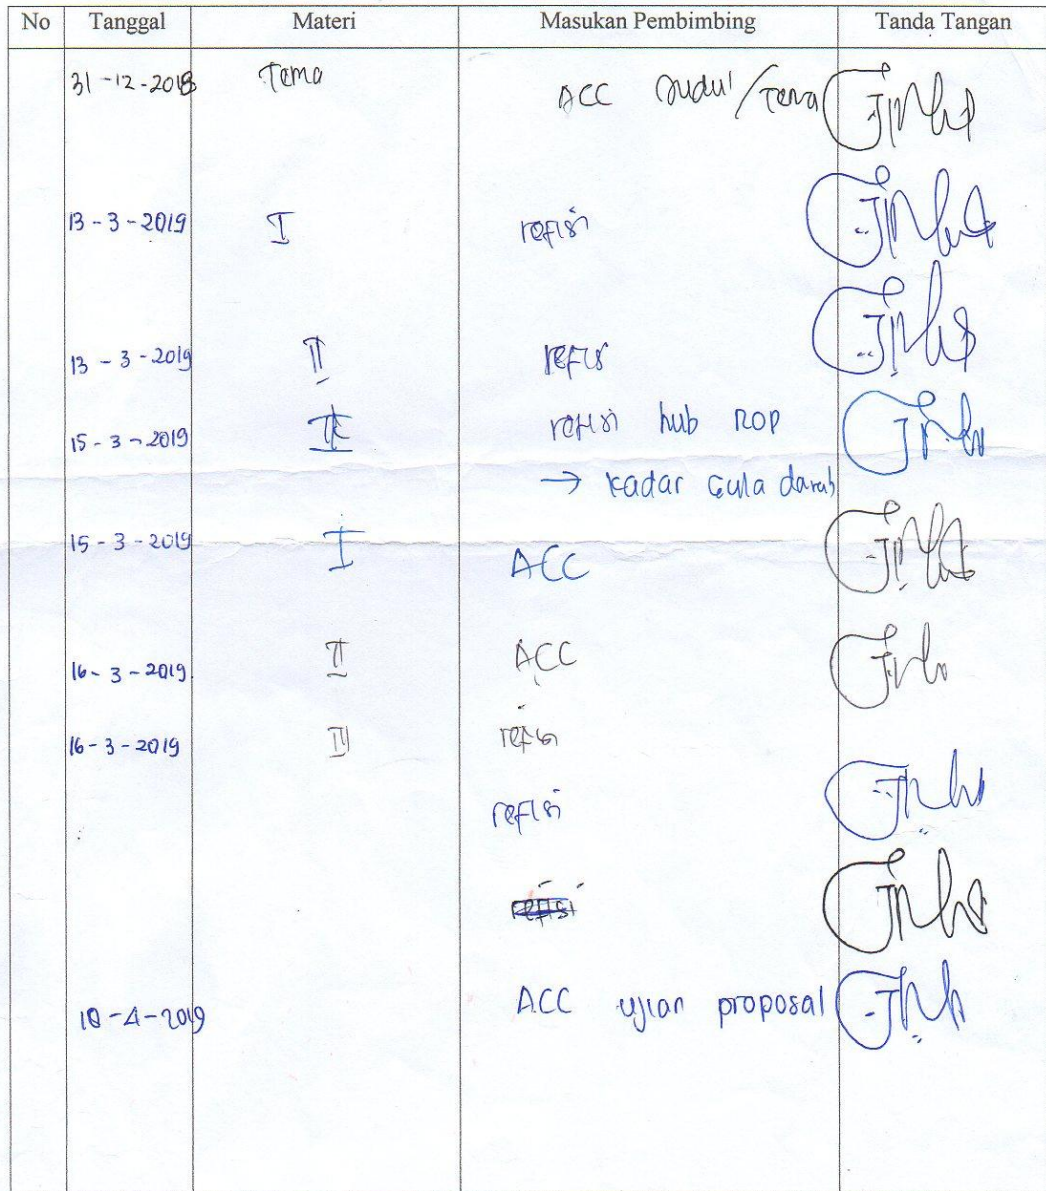 No Tanggal Materi Masukan Pembimbing Tanda Tangan
31-12-2018 Tema ACC Judul/Tema
13-3-2019 I refisi
13-3-2019 II refisi
15-3-2019 II refisi hub ROP
→ kadar Gula darah
15-3-2019 I ACC
16-3-2019 II ACC
16-3-2019 refisi
refisi
refisi
-4-2019 ACC ujian proposal